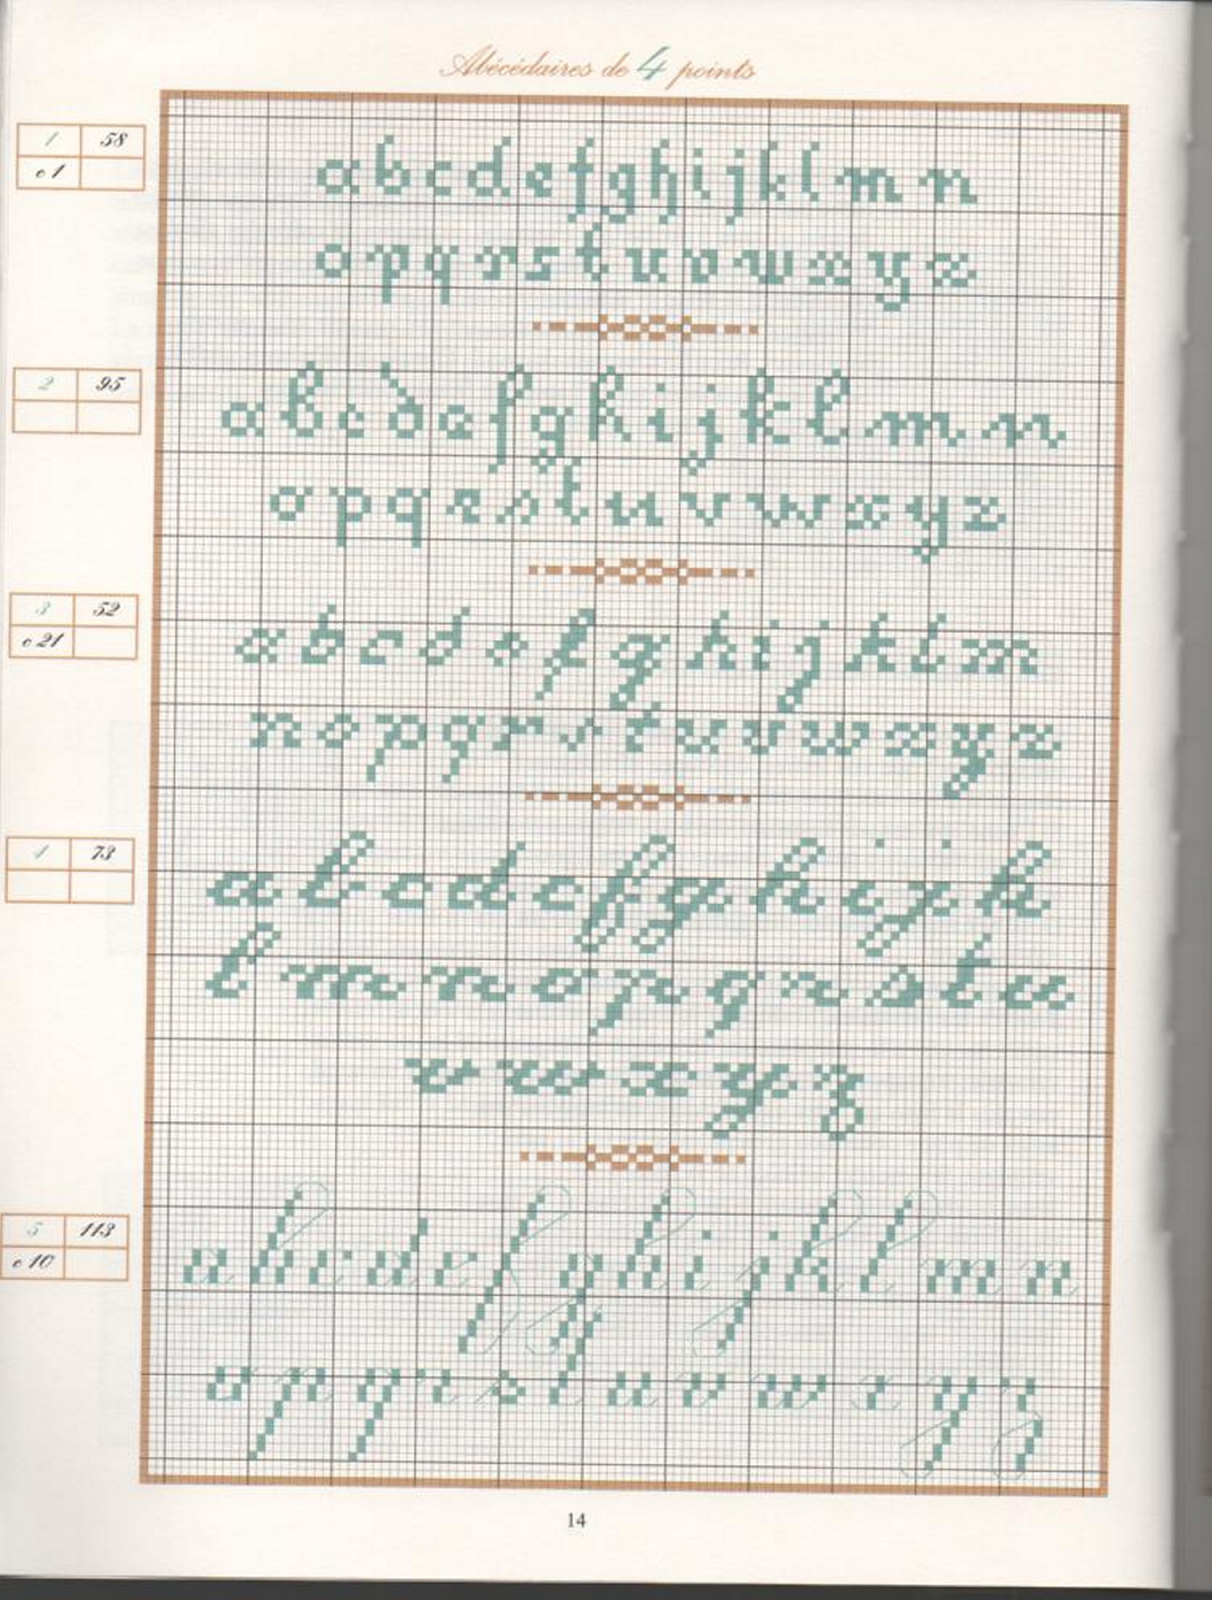 Abécédaires de 4 points
1 58
c1
abcdefghijklmn
opqrstuvwxyz
2 95
abcdefghijklmn
opqrstuvwxyz
3 52
c21
abcdefghijklm
nopqrstuvwxyz
4 73
abcdefghijk
lmnopqrstu
vwxyz
5 113
c10
abcdefghijklmn
opqrstuvwxyz
14